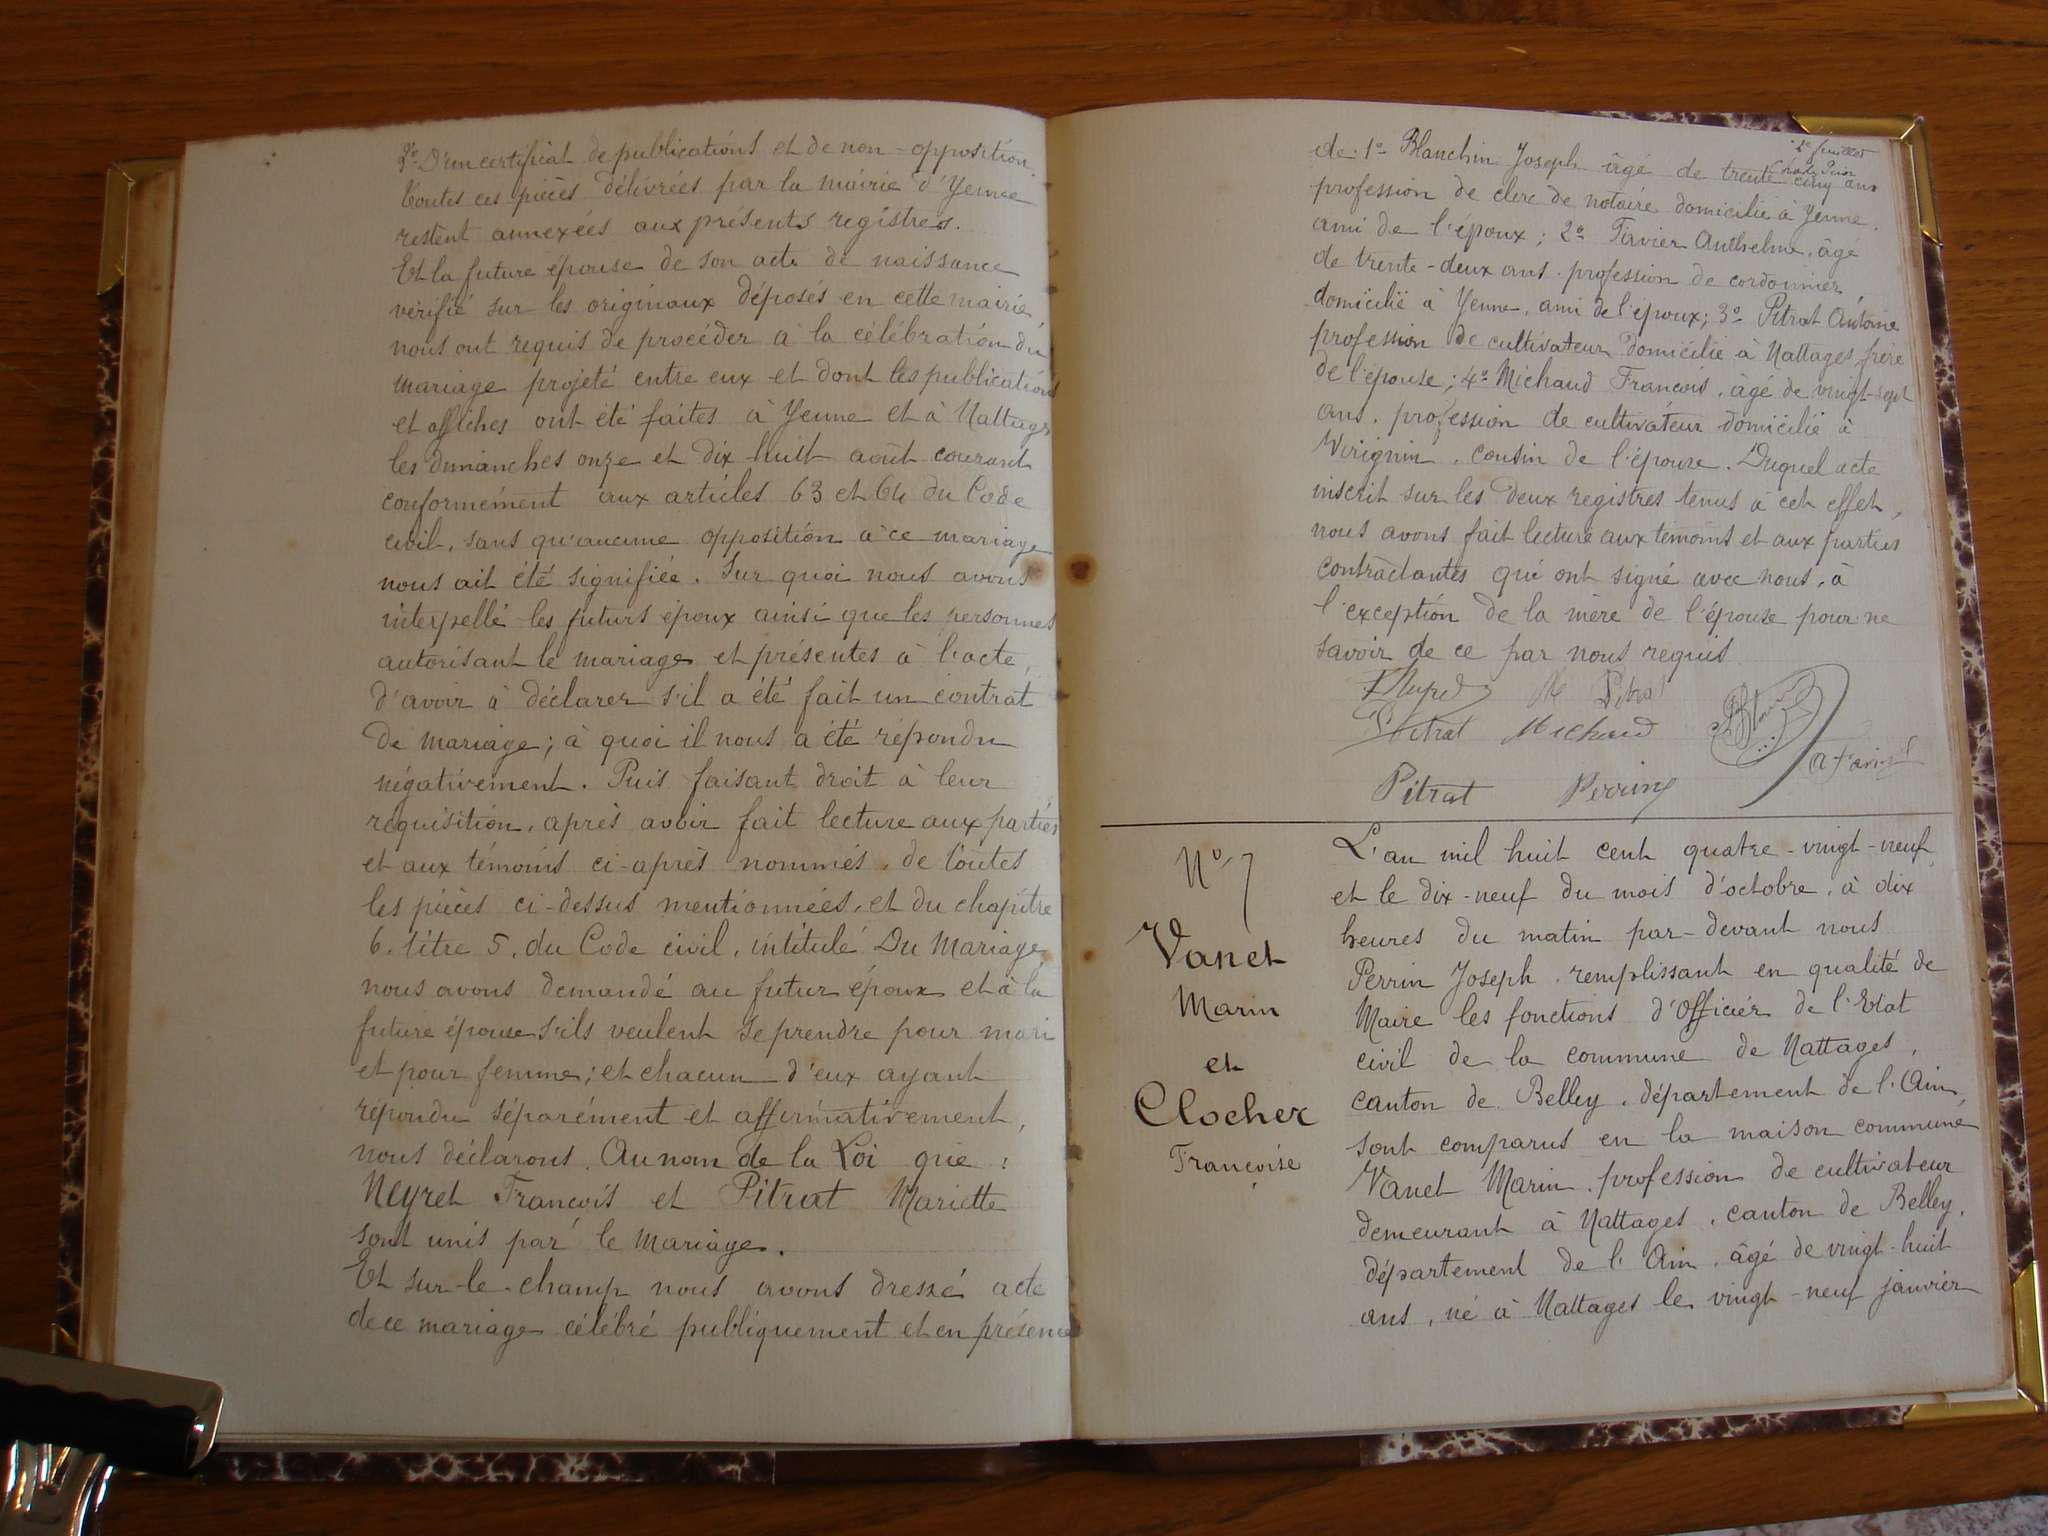 2º D'un certificat de publications et de non-opposition.
Toutes ces pièces délivrées par la mairie d'Yenne
restent annexées aux présents registres.
Et la future épouse de son acte de naissance
vérifié sur les originaux déposés en cette mairie,
nous ont requis de procéder à la célébration du
mariage projeté entre eux et dont les publications
et affiches ont été faites à Yenne et à Nattages
les dimanches onze et dix huit août courant
conformément aux articles 63 et 64 du Code
civil, sans qu'aucune opposition à ce mariage
nous ait été signifiée. Sur quoi nous avons
interpellé les futurs époux ainsi que les personnes
autorisant le mariage et présentes à l'acte,
d'avoir à déclarer s'il a été fait un contrat
de mariage; à quoi il nous a été répondu
négativement. Puis faisant droit à leur
réquisition, après avoir fait lecture aux parties
et aux témoins ci-après nommés, de toutes
les pièces ci-dessus mentionnées, et du chapitre
6, titre 5, du Code civil, intitulé Du Mariage
nous avons demandé au futur époux et à la
future épouse s'ils veulent se prendre pour mari
et pour femme; et chacun d'eux ayant
répondu séparément et affirmativement,
nous déclarons, Au nom de la Loi que :
Neyret François et Pitrat Mariette
sont unis par le mariage.
Et sur-le-champ nous avons dressé acte
de ce mariage célébré publiquement et en présence
feuillet
de 1º Blanchin Joseph âgé de trente cinq ans
profession de clerc de notaire domicilié à Yenne,
ami de l'époux; 2º Anthelme, âgé
de trente-deux ans, profession de cordonnier
domicilié à Yenne, ami de l'époux; 3º Pitrat Antoine
profession de cultivateur domicilié à Nattages, frère
de l'épouse; 4º Michaud François, âgé de vingt-sept
ans, profession de cultivateur domicilié à
Virignin, cousin de l'épouse. Duquel acte
inscrit sur les deux registres tenus à cet effet,
nous avons fait lecture aux témoins et aux parties
contractantes qui ont signé avec nous, à
l'exception de la mère de l'épouse pour ne
savoir de ce par nous requis
Pitrat
Pitrat Michaud
Pitrat Perrin
Nº 7
Vanet
Marin
et
Clocher
Françoise
L'an mil huit cent quatre-vingt-neuf,
et le dix-neuf du mois d'octobre, à dix
heures du matin par-devant nous
Perrin Joseph, remplissant en qualité de
Maire les fonctions d'Officier de l'Etat
civil de la commune de Nattages,
canton de Belley, département de l'Ain,
sont comparus en la maison commune
Vanet Marin, profession de cultivateur
demeurant à Nattages, canton de Belley,
département de l'Ain, âgé de vingt-huit
ans, né à Nattages le vingt-neuf janvier